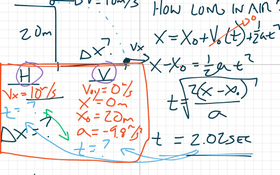 V=10m/s
HOW LONG IN AIR?
20m
ΔX?
Vx
X=X₀+V₀(t)+½at²
0
H V
X-X₀=½at²
Vx=10m/s V₀y=0m/s
t=? X=0m
ΔX=? X₀=20m
a=-9.8m/s²
t=?
t=√2(X-X₀)/a
t=2.02sec